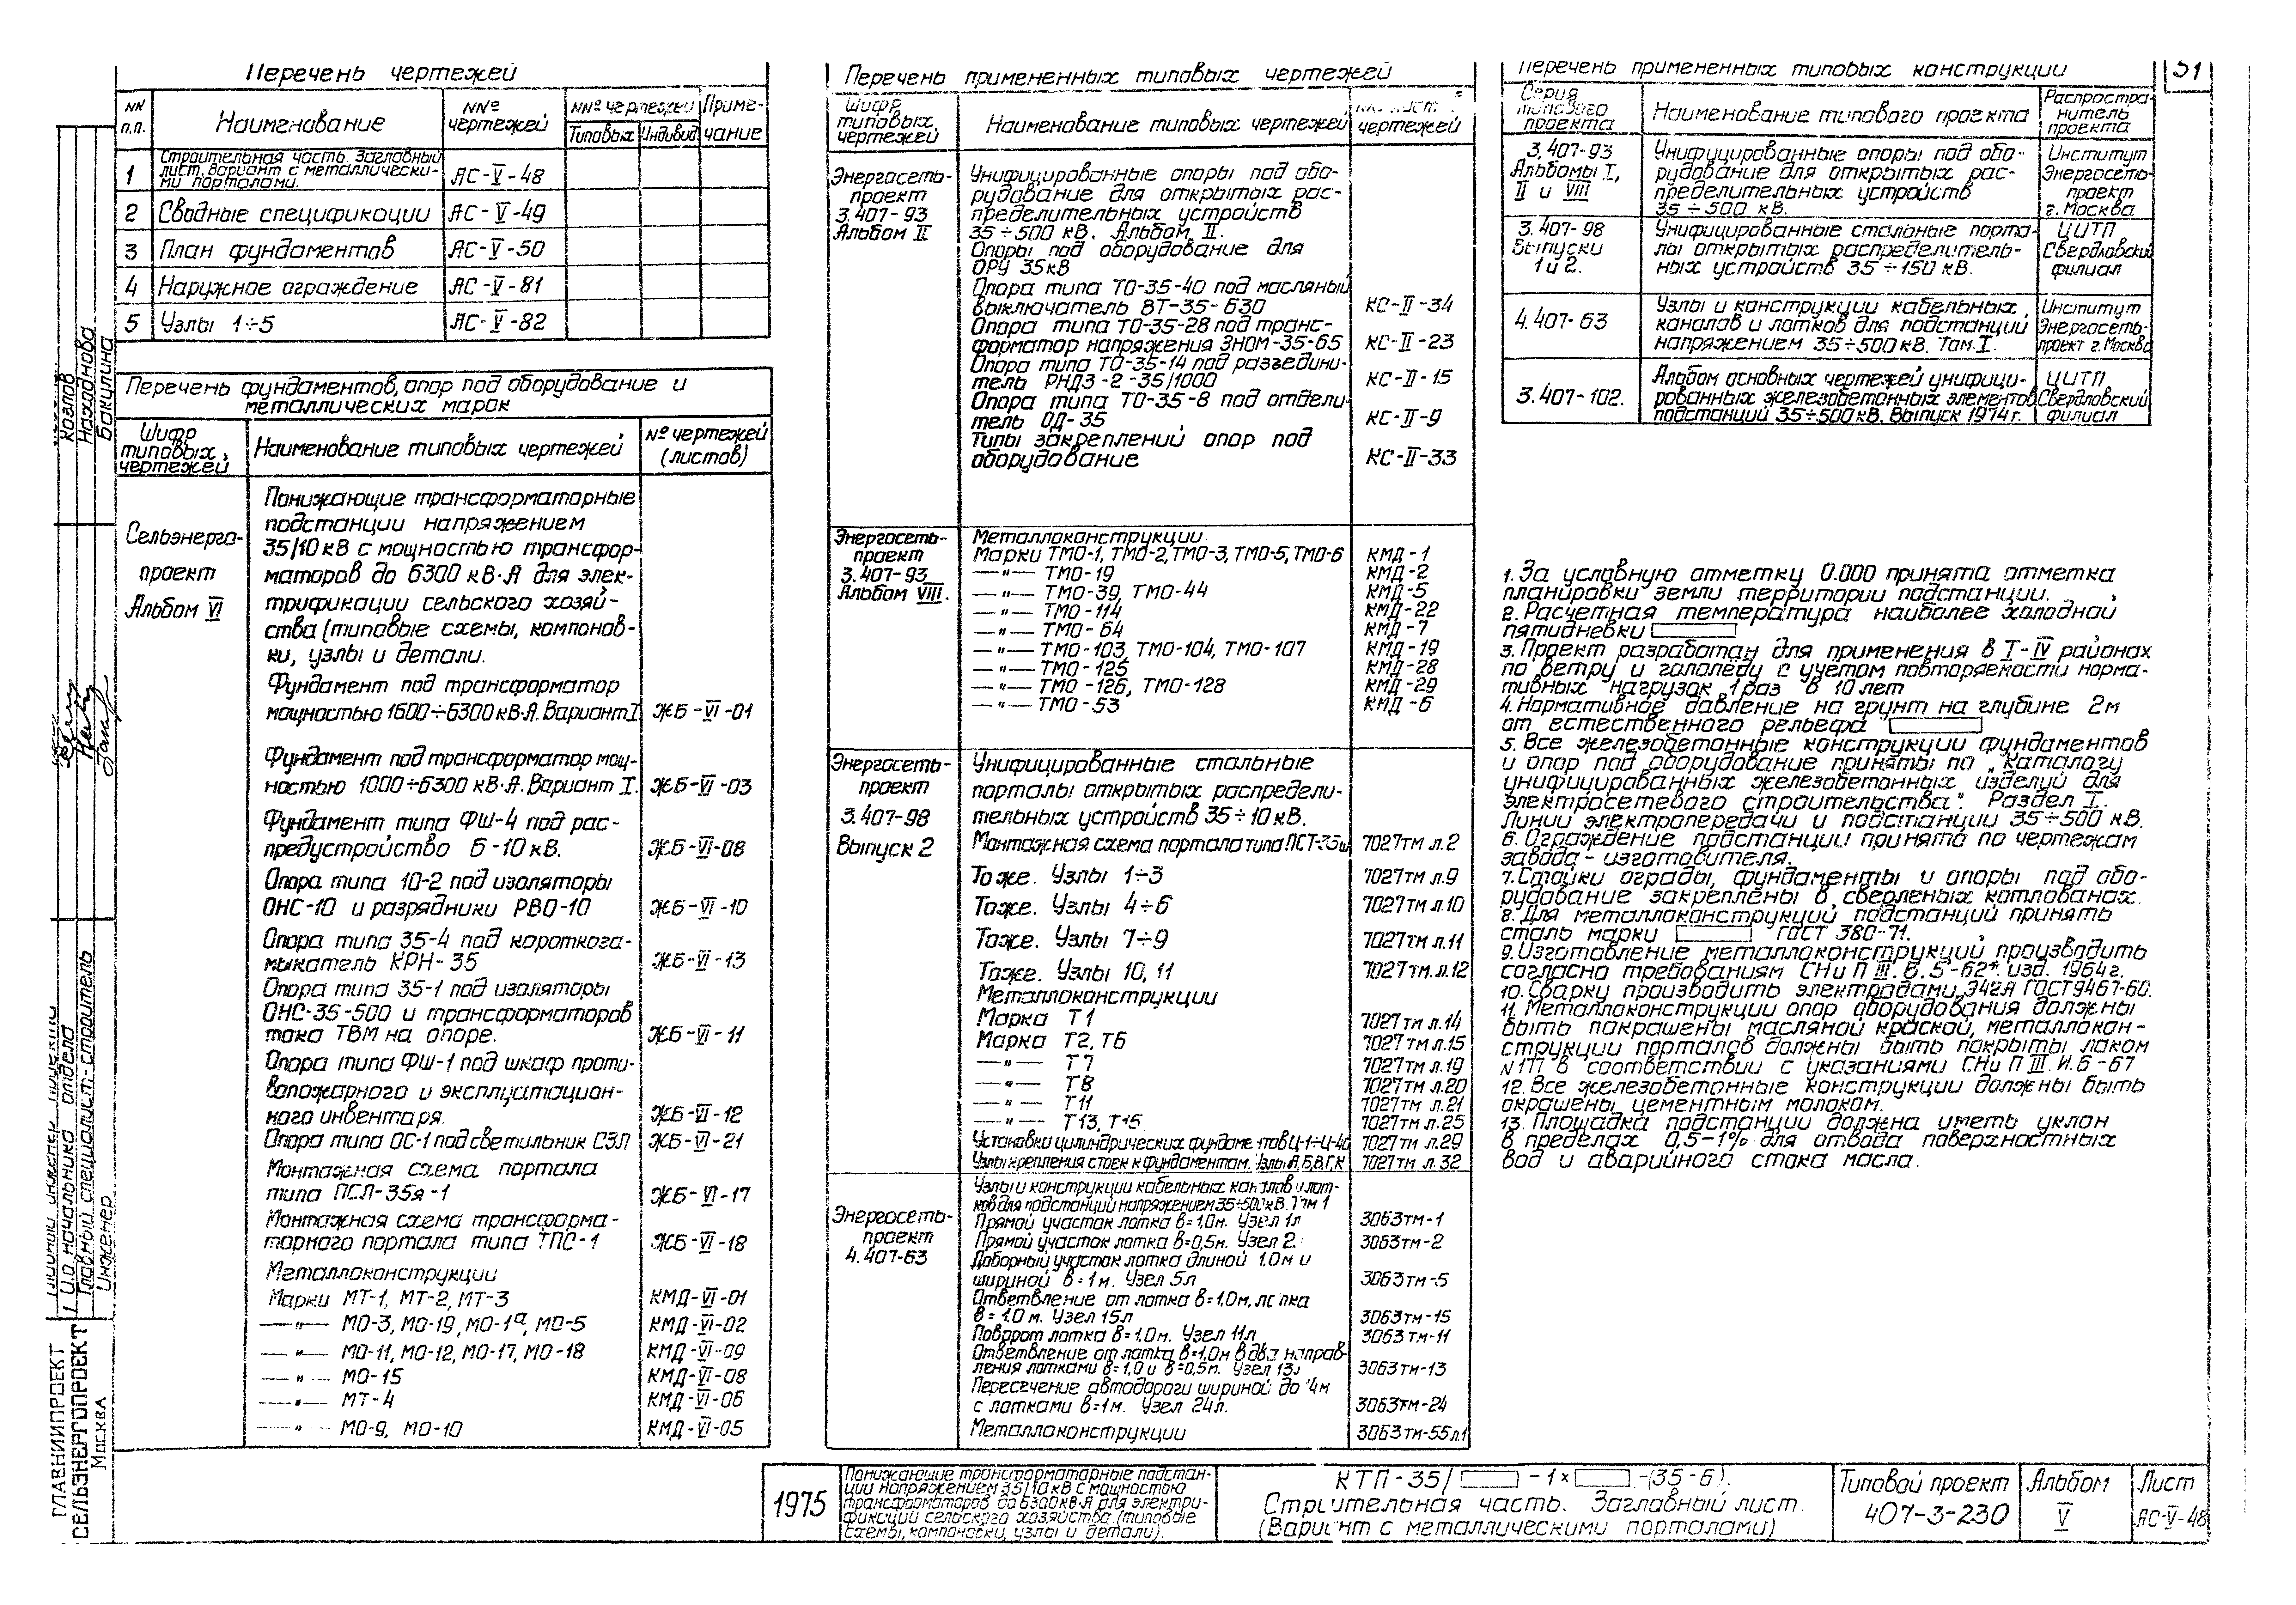 Перечень чертежей
NN п.п.
Наименование
NNº чертежей
NNº чертежей
Типовых
Индивид
Приме-
чание
1
Строительная часть. Заглавный
лист. Вариант с металлически-
ми порталами.
АС-V-48
2 Сводные спецификации АС-V-49
3 План фундаментов АС-V-50
4 Наружное ограждение АС-V-81
5 Узлы 1÷5 АС-V-82
Перечень фундаментов, опор под оборудование и
металлических марок
Шифр
типовых
чертежей
Наименование типовых чертежей
Nº чертежей
(листов)
Сельэнерго-
проект
Альбом VI
Понижающие трансформаторные
подстанции напряжением
35/10 кВ с мощностью трансфор-
маторов до 6300 кВ·А для элек-
трификации сельского хозяй-
ства (типовые схемы, компонов-
ки, узлы и детали.
Фундамент под трансформатор
мощностью 1600÷6300 кВ·А. Вариант I ЖБ-VI-01
Фундамент под трансформатор мощ-
ностью 1000÷6300 кВ·А. Вариант I. ЖБ-VI-03
Фундамент типа ФШ-4 под рас-
предустройство 6-10 кВ. ЖБ-VI-08
Опора типа 10-2 под изоляторы
ОНС-10 и разрядники РВО-10 ЖБ-VI-10
Опора типа 35-4 под короткоза-
мыкатель КРН-35 ЖБ-VI-13
Опора типа 35-1 под изоляторы
ОНС-35-500 и трансформаторов
тока ТВМ на опоре. ЖБ-VI-11
Опора типа ФШ-1 под шкаф проти-
вопожарного и эксплуатацион-
ного инвентаря. ЖБ-VI-12
Опора типа ОС-1 под светильник СЗЛ ЖБ-VI-21
Монтажная схема портала
типа ПСЛ-35я-1 ЖБ-VI-17
Монтажная схема трансформа-
торного портала типа ТПС-1 ЖБ-VI-18
Металлоконструкции
Марки МТ-1, МТ-2, МТ-3 КМД-VI-01
—"— МО-3, МО-19, МО-1а, МО-5 КМД-VI-02
—"— МО-11, МО-12, МО-17, МО-18 КМД-VI-09
—"— МО-15 КМД-VI-08
—"— МТ-4 КМД-VI-06
—"— МО-9, МО-10 КМД-VI-05
Перечень примененных типовых чертежей
Шифр
типовых
чертежей
Наименование типовых чертежей
чертежей
Энергосеть-
проект
3.407-93
Альбом II
Унифицированные опоры под обо-
рудование для открытых рас-
пределительных устройств
35÷500 кВ. Альбом II.
Опоры под оборудование для
ОРУ 35кВ
Опора типа ТО-35-40 под масляный
выключатель ВТ-35-630 КС-II-34
Опора типа ТО-35-28 под транс-
форматор напряжения ЗНОМ-35-65 КС-II-23
Опора типа ТО-35-14 под разъедини-
тель РНДЗ-2-35/1000 КС-II-15
Опора типа ТО-35-8 под отдели-
тель ОД-35 КС-II-9
Типы закреплений опор под
оборудование КС-II-33
Энергосеть-
проект
3.407-93
Альбом VIII.
Металлоконструкции.
Марки ТМО-1, ТМО-2, ТМО-3, ТМО-5, ТМО-6 КМД-1
—"— ТМО-19 КМД-2
—"— ТМО-39, ТМО-44 КМД-5
—"— ТМО-114 КМД-22
—"— ТМО-64 КМД-7
—"— ТМО-103, ТМО-104, ТМО-107 КМД-19
—"— ТМО-125 КМД-28
—"— ТМО-126, ТМО-128 КМД-29
—"— ТМО-53 КМД-6
Энергосеть-
проект
3.407-98
Выпуск 2
Унифицированные стальные
порталы открытых распредели-
тельных устройств 35÷10кВ.
Монтажная схема портала типа ПСТ-35ш 7027тм л.2
Тоже. Узлы 1÷3 7027тм л.9
Тоже. Узлы 4÷6 7027тм л.10
Тоже. Узлы 7÷9 7027тм л.11
Тоже. Узлы 10, 11 7027тм.л.12
Металлоконструкции
Марка Т1 7027тм л.14
Марка Т2, Т6 7027тм л.15
—"— Т7 7027тм л.19
—"— Т8 7027тм л.20
—"— Т11 7027тм л.21
—"— Т13, Т15 7027тм л.25
Установка цилиндрических фундаментов Ц-1÷Ц-4а 7027тм л.29
Узлы крепления стоек к фундаментам. Узлы А,Б,В,Г,К 7027тм л.32
Энергосеть-
проект
4.407-63
Узлы и конструкции кабельных каналов и лот-
ков для подстанций напряжением 35÷500кВ. Том 1
Прямой участок лотка в=1,0м. Узел 1л 3063тм-1
Прямой участок лотка в=0,5м. Узел 2. 3063тм-2
Доборный участок лотка длиной 1.0м и
шириной в=1м. Узел 5л 3063тм-5
Ответвление от лотка в=1,0м, лотка
в=1.0м. Узел 15л 3063тм-15
Поворот лотка в=1,0м. Узел 11л 3063тм-11
Ответвление от лотка в=1,0м в два направ-
ления лотками в=1,0 и в=0,5м. Узел 13л 3063тм-13
Пересечение автодороги шириной до 4м
с лотками в=1м. Узел 24л. 3063тм-24
Металлоконструкции 3063тм-55л.1
Перечень примененных типовых конструкции
51
Серия
типового
проекта
Наименование типового проекта
Распростра-
нитель
проекта
3.407-93
Альбомы I,
II и VIII
Унифицированные опоры под обо-
рудование для открытых рас-
пределительных устройств
35÷500 кВ.
Институт
Энергосеть-
проект
г. Москва
3.407-98
Выпуски
1 и 2.
Унифицированные стальные порта-
лы открытых распределитель-
ных устройств 35÷150 кВ.
ЦИТП
Свердловский
филиал
4.407-63
Узлы и конструкции кабельных
каналов и лотков для подстанций
напряжением 35÷500кВ. Том.I.
Институт
Энергосеть-
проект г.Москва
3.407-102.
Альбом основных чертежей унифици-
рованных железобетонных элементов
подстанций 35÷500кВ. Выпуск 1974г.
ЦИТП
Свердловский
филиал
1. За условную отметку 0.000 принята отметка
планировки земли территории подстанции.
2. Расчетная температура наиболее холодной
пятидневки
3. Проект разработан для применения в I-IV районах
по ветру и гололёду с учётом повторяемости норма-
тивных нагрузок 1раз в 10 лет
4. Нормативное давление на грунт на глубине 2м
от естественного рельефа
5. Все железобетонные конструкции фундаментов
и опор под оборудование приняты по „Каталогу
унифицированных железобетонных изделий для
электросетевого строительства". Раздел I.
Линии электропередачи и подстанции 35÷500 кВ.
6. Ограждение подстанции принято по чертежам
завода-изготовителя.
7. Стойки ограды, фундаменты и опоры под обо-
рудование закреплены в сверленых котлованах.
8. Для металлоконструкций подстанций принять
сталь марки ГОСТ 380-71.
9. Изготовление металлоконструкций производить
согласно требованиям СНиП III.В.5-62*. изд. 1964г.
10. Сварку производить электродами Э42А ГОСТ 9467-60.
11. Металлоконструкции опор оборудования должны
быть покрашены масляной краской, металлокон-
струкции порталов должны быть покрыты лаком
N177 в соответствии с указаниями СНиП III.И.6-67
12. Все железобетонные конструкции должны быть
окрашены цементным молоком.
13. Площадка подстанции должна иметь уклон
в пределах 0,5-1% для отвода поверхностных
вод и аварийного стока масла.
Козлов
Находнова
Бакулина
И.о. начальника отдела
Главный специалист-строитель
Инженер
ГЛАВНИИПРОЕКТ
СЕЛЬЭНЕРГОПРОЕКТ
Москва
1975
Понижающие трансформаторные подстан-
ции напряжением 35/10кВ с мощностью
трансформаторов до 6300кВ·А для электри-
фикации сельского хозяйства. (типовые
схемы, компоновки, узлы и детали).
КТП-35/ -1× -(35-6).
Строительная часть. Заглавный лист.
(Вариант с металлическими порталами)
Типовой проект
407-3-230
Альбом
V
Лист
АС-V-48